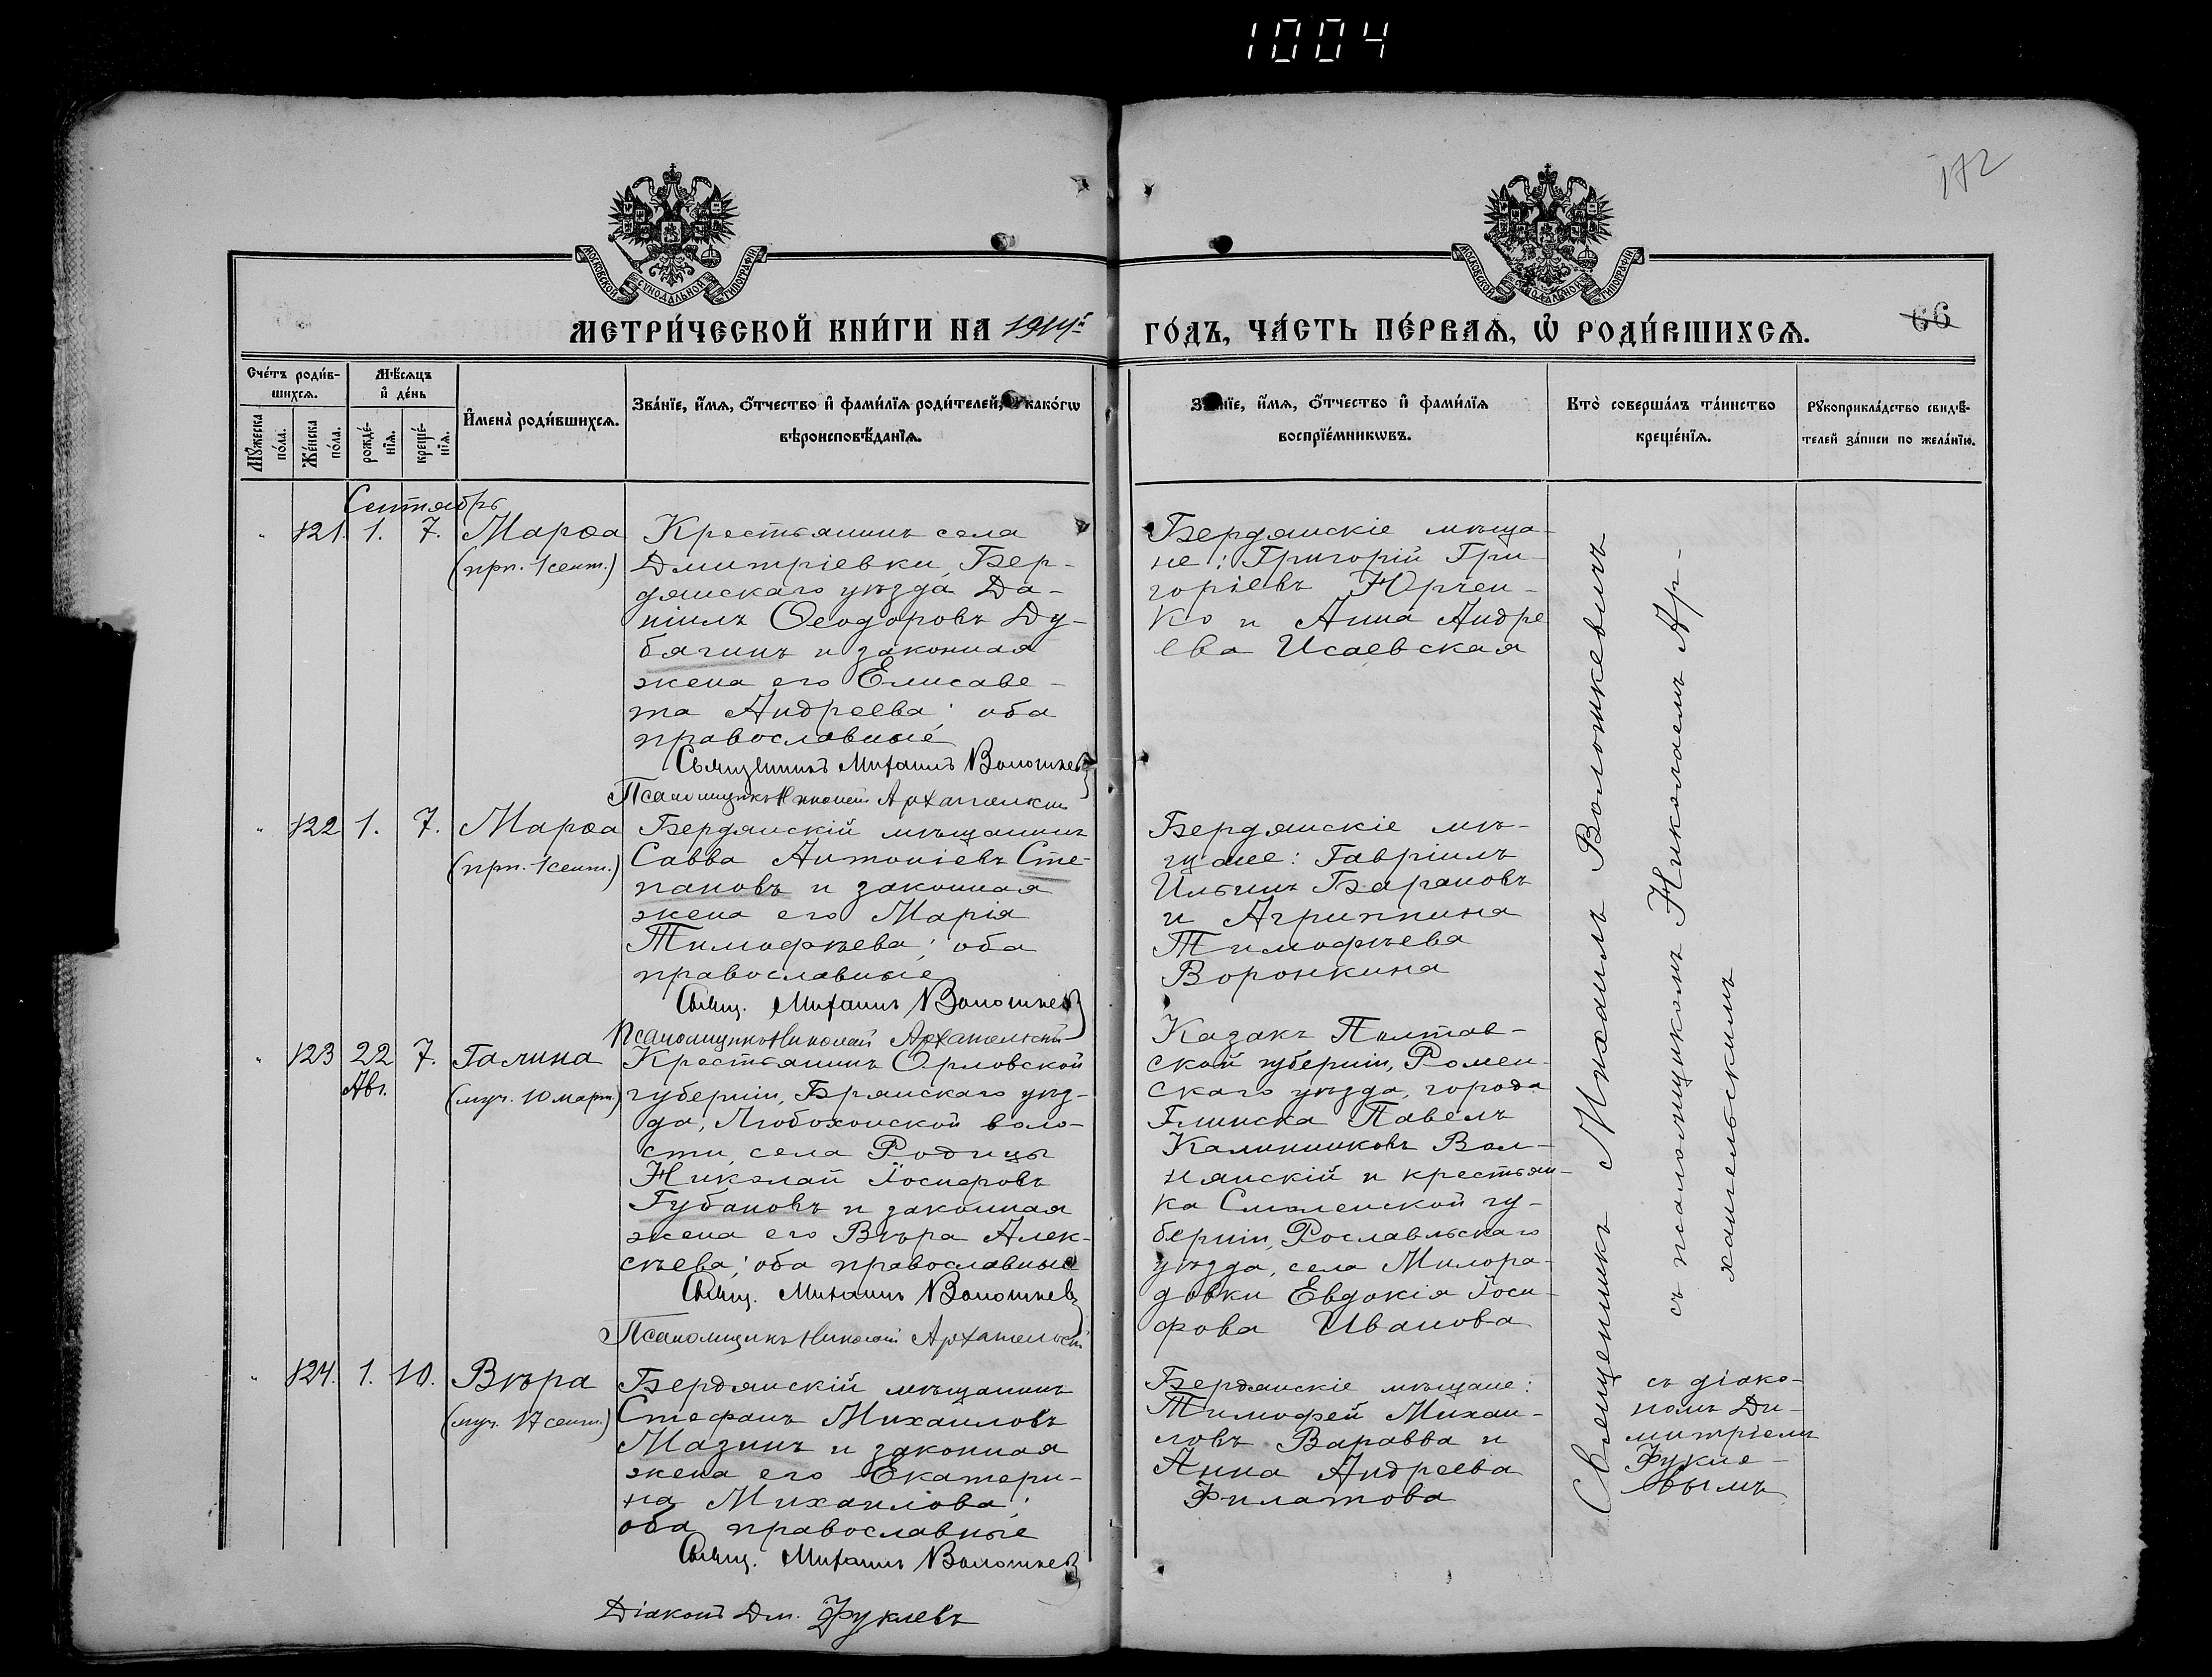 1004
172
МОСКОВСКОЙ СУНОДАЛЬНОЙ ТИПОГРАФІИ
МОСКОВСКОЙ СУНОДАЛЬНОЙ ТИПОГРАФІИ
МЕТРИ́ЧЕСКОЙ КНИ́ГИ НА 1914й
ГО́ДЪ, ЧА́СТЬ ПЕ́РВАѦ, Ѡ РОДИ́ВШИХСѦ.
66
Сче́тъ роди́в-
шихсѧ.
Мꙋ́жеска по́ла.
Же́нска по́ла.
Мѣ́сѧцъ
и҆ де́нь
рожде́-
нїѧ.
креще́-
нїѧ.
И҆мена̀ роди́вшихсѧ.
Зва́нїе, и҆́мѧ, ѻ҆́тчество и҆ фами́лїѧ роди́телей, и҆ како́гѡ
вѣроисповѣ́данїѧ.
Зва́нїе, и҆́мѧ, ѻ҆́тчество и҆ фами́лїѧ
воспрїе́мникѡвъ.
Кто̀ соверша́лъ та́инство
креще́нїѧ.
Рꙋкоприкла́дство свидѣ́-
телей за́писи по жела́нїю.
Сентябрь
" 121. 1. 7. Марѳа
(прп. 1 сент.)
Крестьянинъ села
Дмитріевки, Бер-
дянскаго уѣзда Да-
ніилъ Ѳеодоровъ Ду-
бягинъ и законная
жена его Елисаве-
та Андреева; оба
православные
Священникъ Михаилъ Воложкевичъ
Псаломщикъ Николай Архангельскій
Бердянскіе мѣща-
не: Григорій Гри-
горіевъ Юрчен-
ко и Анна Андре
ева Исаевская
" 122 1. 7. Марѳа
(прп. 1 сент.)
Бердянскій мѣщанинъ
Савва Антоніевъ Сте-
пановъ и законная
жена его Марія
Тимофѣева; оба
православные
Свящ. Михаилъ Воложкевичъ
Псаломщикъ Николай Архангельскій
Бердянскіе мѣ-
щане: Гавріилъ
Ильинъ Барановъ
и Агриппина
Тимофѣева
Воронкина
" 123 22 7. Галина
Авг.
(муч. 10 март.)
Крестьянинъ Орловской
губерніи, Брянскаго уѣз-
да, Любохонской воло-
сти, села Родицы
Николай Іосифовъ
Губановъ и законная
жена его Вѣра Алек-
сѣева; оба православные
Свящ. Михаилъ Воложкевичъ
Псаломщикъ Николай Архангельскій
Казакъ Полтав-
ской губерніи, Ромен-
скаго уѣзда, города
Глинска Павелъ
Калинниковъ Вол-
нянскій и крестьян-
ка Смоленской гу-
берніи, Рославльскаго
уѣзда, села Милора-
довки Евдокія Іоси-
фова Иванова
" 124. 1. 10. Вѣра
(муч. 17 сент.)
Бердянскій мѣщанинъ
Стефанъ Михаиловъ
Мазинъ и законная
жена его Екатери-
на Михаилова;
оба православные
Свящ. Михаилъ Воложкевичъ
Діаконъ Дм. Фуклевъ
Бердянскіе мѣщане:
Тимофей Михаи-
ловъ Варавва и
Анна Андреева
Филатова
Священникъ Михаилъ Воложкевичъ
съ псаломщикомъ Николаемъ Ар-
хангельскимъ
съ діако-
номъ Ди-
митріемъ
Фукле-
вымъ